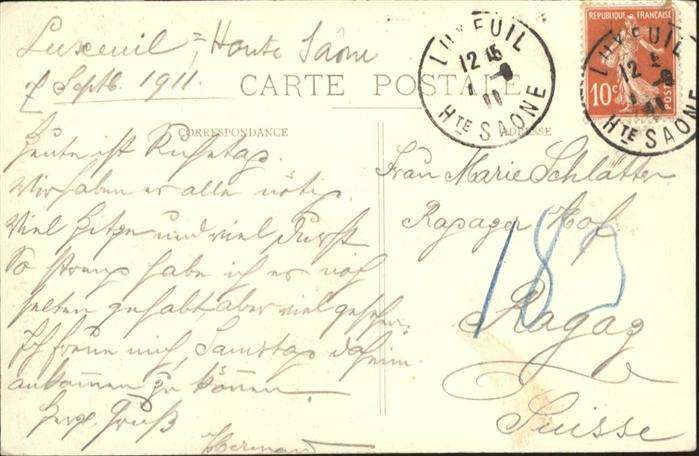 Luxeuil = Haute Saône
7 Septb. 1911.
CARTE POSTALE
CORRESPONDANCE
ADRESSE
Heute ist Ruhetag.
Wir haben es alle nötig.
Viel Hitze und viel Durst
So streng habe ich es noch
selten gehabt, aber viel gesehen.
Ich freue mich, Samstag daheim
ankommen zu können.
Herzl. Gruß
Hermann
Frau Marie Schlätter
Ragazer Hof
Ragaz
Suisse
LUXEUIL
12 15
-9
11
HTE SAONE
REPUBLIQUE FRANÇAISE
10c
POSTES
LUXEUIL
12
-9
11
HTE SAONE